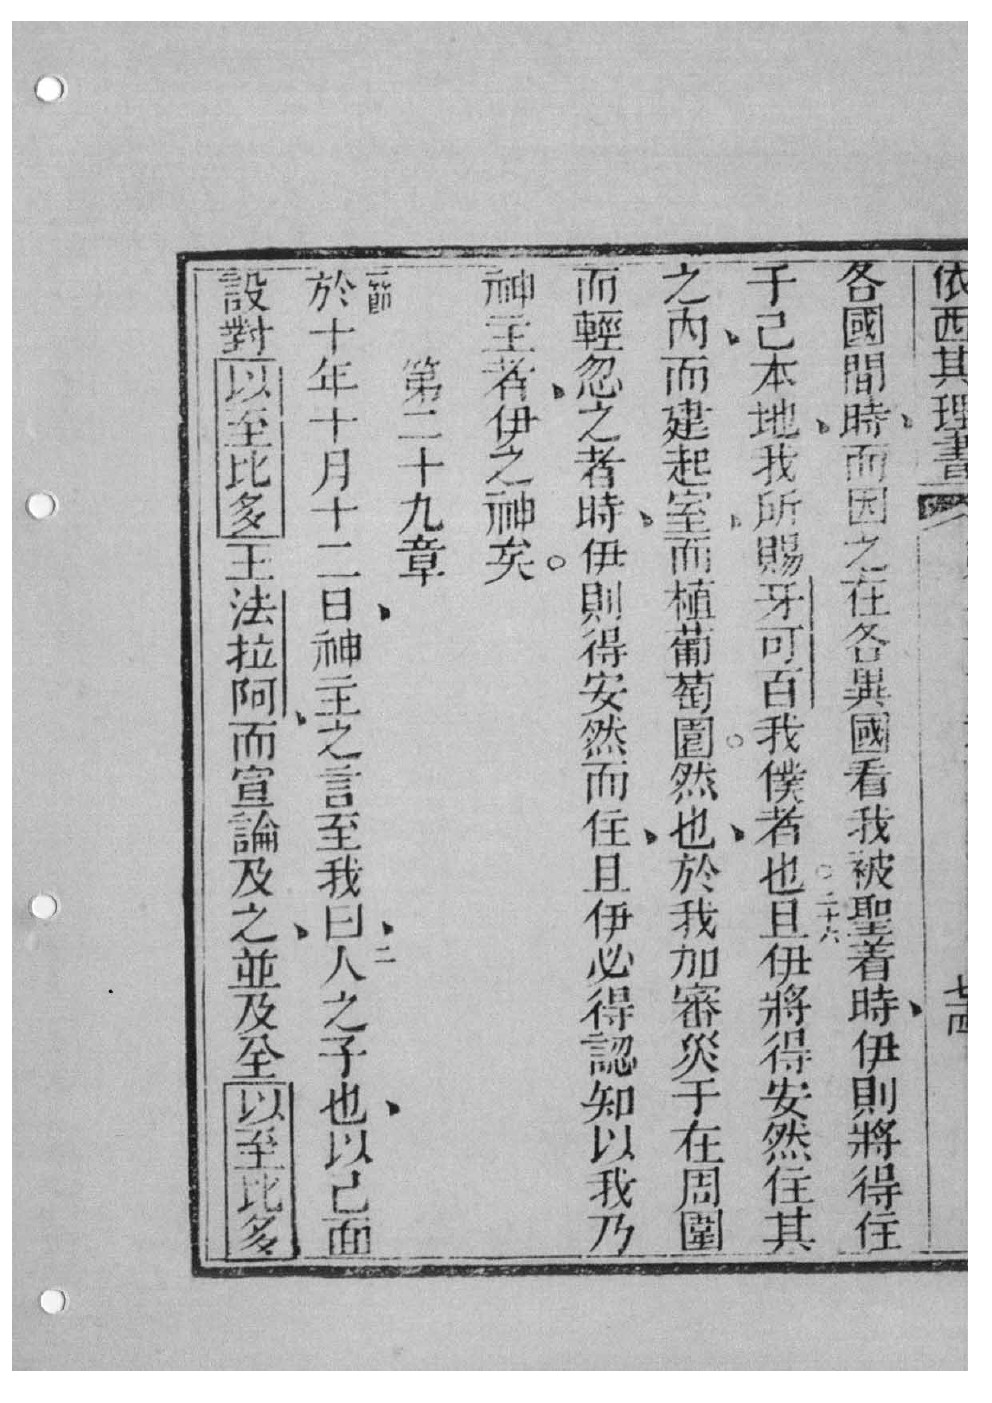 依西其理書
七十四
各國間、時而因之在各異國看我被聖着時、伊則將得住
于己本地、我所賜牙可百我僕者也。二十六且伊將得安然住其
之內、而建起室、而植葡萄園。然也、於我加審災于在周圍
而輕忽之者時、伊則得安然而住、且伊必得認知以我乃
神主者、伊之神矣。
第二十九章
一節於十年十月十二日、神主之言至我曰、二人之子也、以己面
設對以至比多王法拉阿、而宣論及之、並及至以至比多